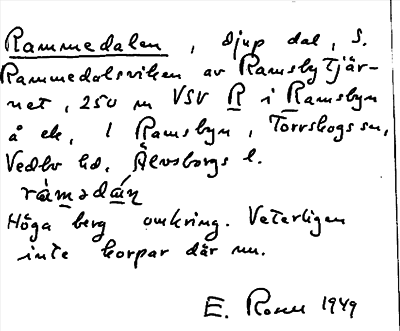 Rammedalen, djup dal, S.
Rammedalsviken av Ramsby Tjär-
net, 250 m VSV R i Ramsbyn
å ek, 1 Ramsbyn, Torrskogs sn,
Vedbo hd, Älvsborgs l.
ràmədán
Höga berg omkring. Veterligen
inte korpar där nu.
E. Rosen 1949